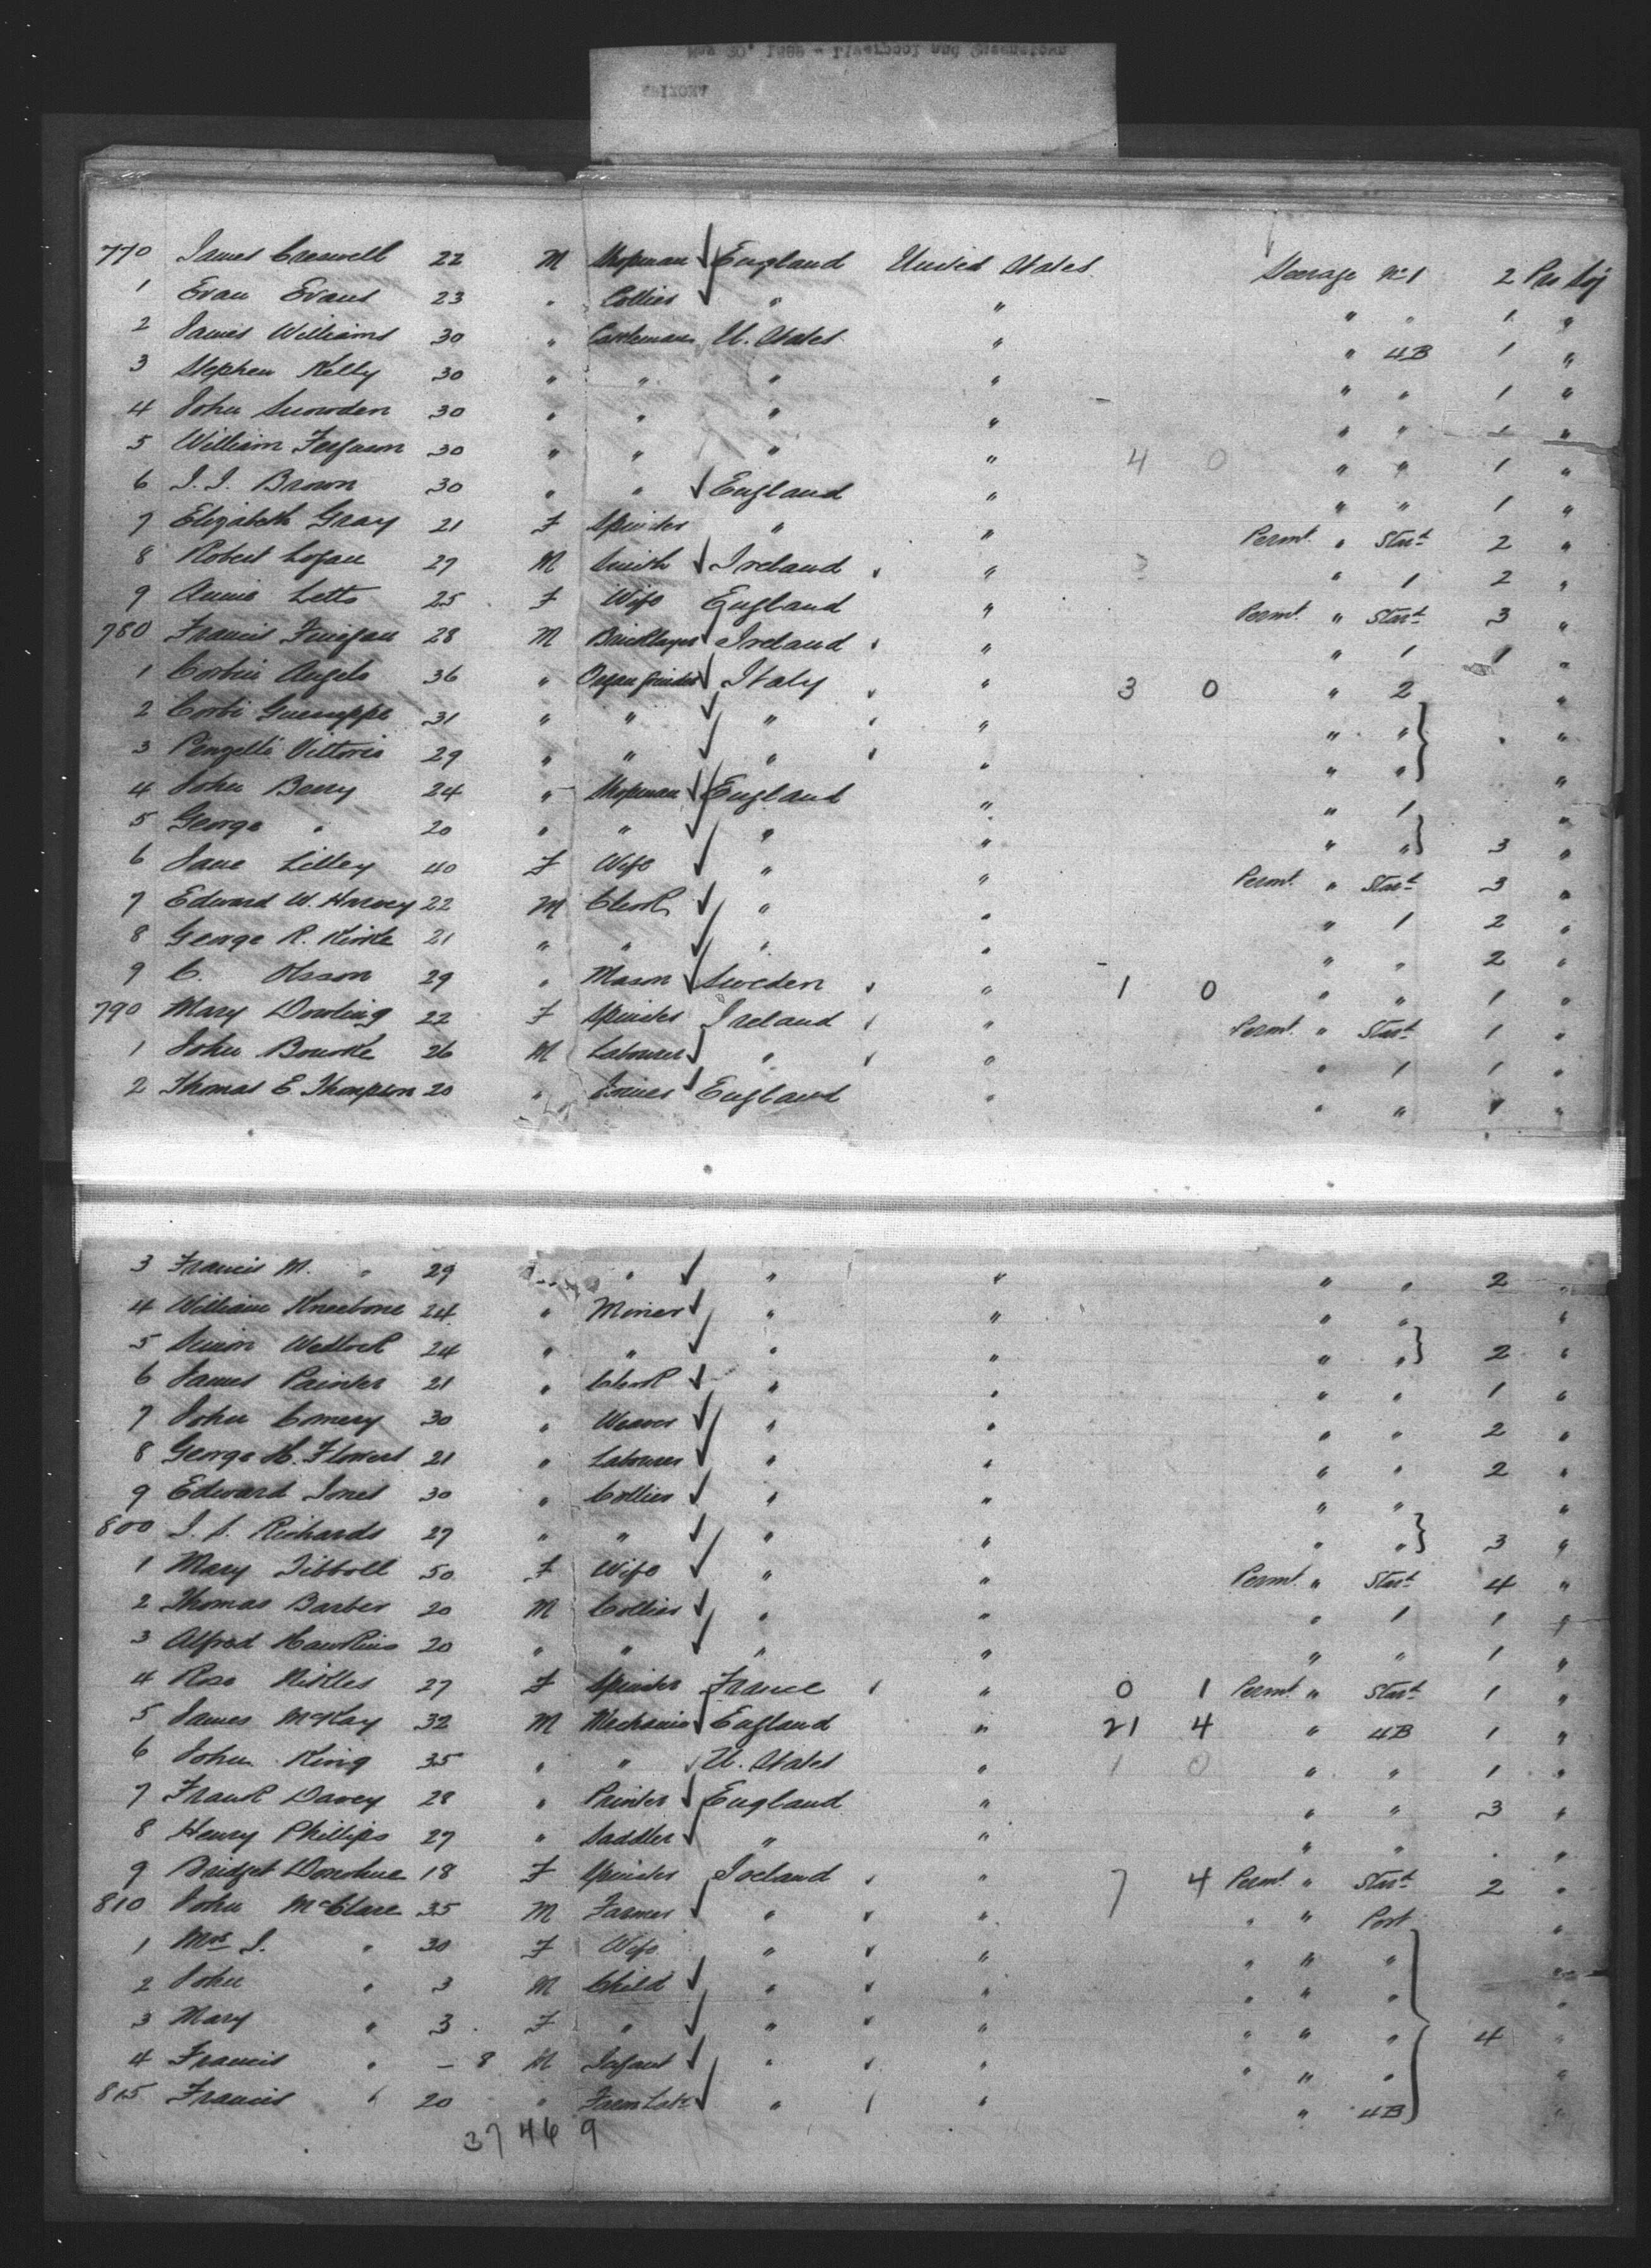 770 James Creswell 22 M Shopman England United States Steerage No 1 2 Pro Soj
1 Evan Evans 23 " Collier " " " " 1 "
2 James Williams 30 " Cattleman U. States " " 4B 1 "
3 Stephen Kelly 30 " " " " " " 1 "
4 John Snowden 30 " " " " " " 1 "
5 William Ferguson 30 " " " " 4 0 " " 1 "
6 J. J. Brown 30 " " England " " " 1 "
7 Elizabeth Gray 21 F Spinster " " Permt. " Starbd 2 "
8 Robert Logan 27 M Smith Ireland " " 1 2 "
9 Annie Letts 25 F Wife England " Permt. " Starbd 3 "
780 Francis Finegan 28 M Bricklayer Ireland " " 1 1 "
1 Angelo 36 " Organ Grinder Italy " 3 0 " 2 "
2 Corti Guiseppe 31 " " " " " " "
3 Vittorio 29 " " " " " " "
4 John Barry 24 " Shopman England " " 1 "
5 George " 20 " " " " " " 3 "
6 Jane Lilley 40 F Wife " " Permt. " Starbd 3 "
7 Edward W. Harvey 22 M Clerk " " " 1 2 "
8 George R. Kirke 21 " " " " " " 2 "
9 C. Olsson 29 " Mason Sweden " 1 0 " " 1 "
790 Mary Dowling 22 F Spinster Ireland " Permt. " Starbd 1 "
1 John Bourke 26 M Labourer " " " 1 1 "
2 Thomas E. Thompson 20 " Joiner England " " " 1 "
3 Francis M. " 29 " " " " " " 2 "
4 William Kneebone 24 " Miner " " " " "
5 Simon Wedlock 24 " " " " " " 2 "
6 James Painter 21 " Clerk " " " " 1 "
7 John Comery 30 " Weaver " " " " 2 "
8 George H. Flowers 21 " Labourer " " " " 2 "
9 Edward Jones 30 " Collier " " " " "
800 J. S. Richards 27 " " " " " " 3 "
1 Mary Tibboll 50 F Wife " " Permt. " Starbd 4 "
2 Thomas Barber 20 M Collier " " " 1 1 "
3 Alfred Hawkins 20 " " " " " " 1 "
4 Rose Nikles 27 F Spinster France " 0 1 Permt. " Starbd 1 "
5 James McKay 32 M Mechanic England " 21 4 " 4B 1 "
6 John King 35 " " U. States " 1 0 " " 1 "
7 Frank Davey 28 " Painter England " " " 3 "
8 Henry Phillips 27 " Saddler " " " " "
9 Bridget Donohue 18 F Spinster Ireland " 7 4 Permt. " Starbd 2 "
810 John McClare 35 M Farmer " " " " Port "
1 Mrs J. " 30 F Wife " " " " " "
2 John " 3 M Child " " " " " "
3 Mary " 3 F " " " " " " 4 "
4 Francis " - 8 M Infant " " " " " "
815 Francis " 20 " Farm Labr " " " 4B "
37 46 9